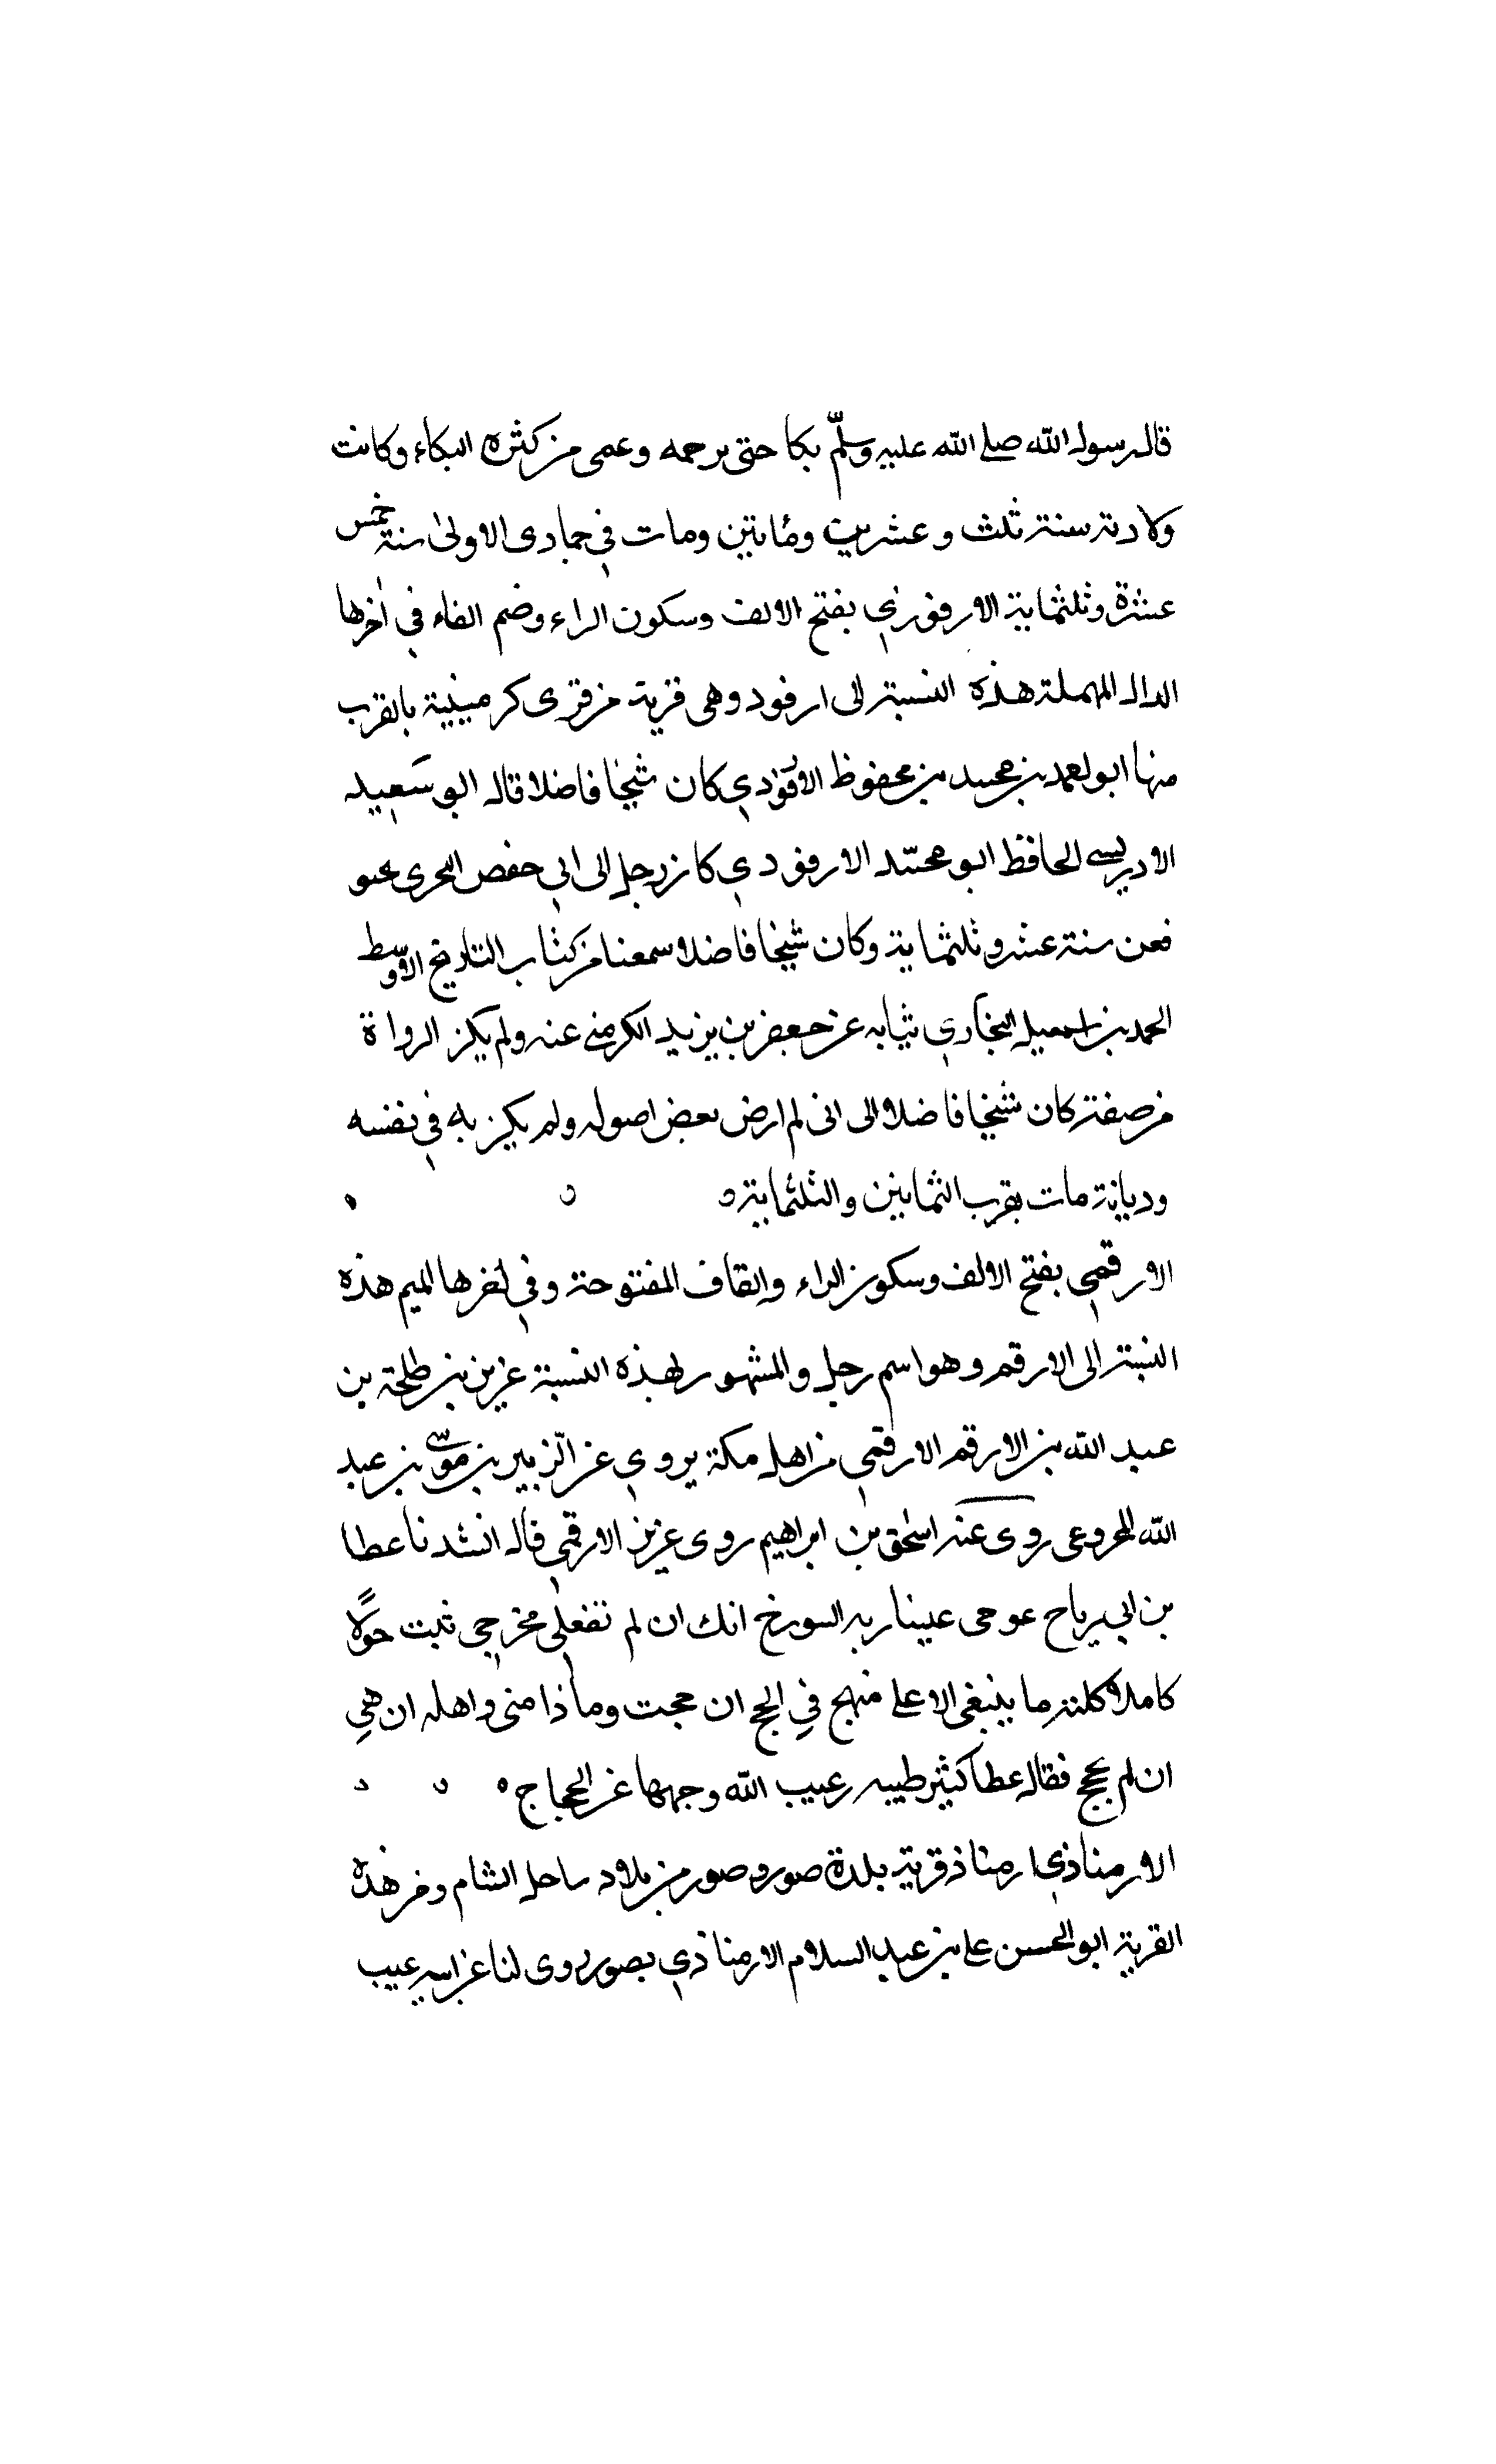 قال رسول الله صلى الله عليه وسلّم بكا حتى يرحمه وعمى من كثره البكاء وكانت
ولادته سنة ثلث وعشرين ومائتين ومات في جمادى الاولى سنة خمس
عشرة وثلثماية الارفودي بفتح الالف وسكون الراء وضم الفاء في اخرها
الدال المهملة هذه النسبة الى ارفود وهى قرية من قرى كرمينية بالقرب
منها ابو احمد بن محمد بن محفوظ الارفودي كان شيخا فاضلا قال ابو سعيد
الادريسى الحافظ ابو محمد الارفودي كان رجل الى ابي حفص البحرى نحو
سنة عشر وثلثماية وكان شيخا فاضلا سمعنا من كتاب التاريخ الاوسط
بن اسمعيل البخاري ثيابه عن جعفر بن يزيد الكرمنى عنه ولم يكن الرواة
من صفته كان شيخا فاضلا الى انى لم ارض بعض اصوله ولم يكن به في نفسه
وديانة مات بقرب الثمانين والثلثماية
الارقمي بفتح الالف وسكون الراء والقاف المفتوحة وفي اخرها الميم هذه
النسبة الى الارقم وهو اسم رجل والمشهور بهذه النسبة عزيز بن طلحة بن
عبد الله بن الارقم الارقمي من اهل مكة يروي عن الزبير بن موسى بن عبد
الله روى عنه اسحق بن ابراهيم روى عزيز الارقمي قال انشدنا عطا
بن ابي رباح عوجى عينا ربه السورح انك ان لم تفعلي مخرجي ثبت حولًا
كاملا كلنه ما ينبغى الا على منهج في الحج ان حجت وماذا منى واهله ان هي
ان لم تحج فقال عطا كثير طيبه رعيب الله وجهها عن الحجاج
الارمنازي ارمناز قرية بلدة صور وصور من بلاد ساحل الشام ومن هذه
القرية ابو الحسن على بن عبد السلام الارمنازي بصور روى لنا عن